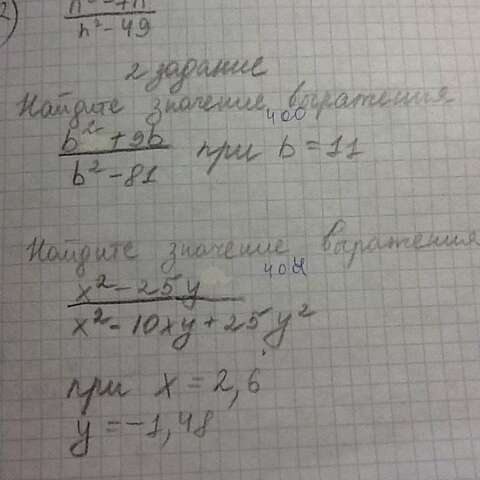 2)
n² - 7n
n² - 49
2 задание
Найдите значение выражения
400
b² + 9b
b² - 81
при b = 11
Найдите значение выражения
404
x² - 25y
x² - 10xy + 25y²
при x = 2,6
y = -1,48